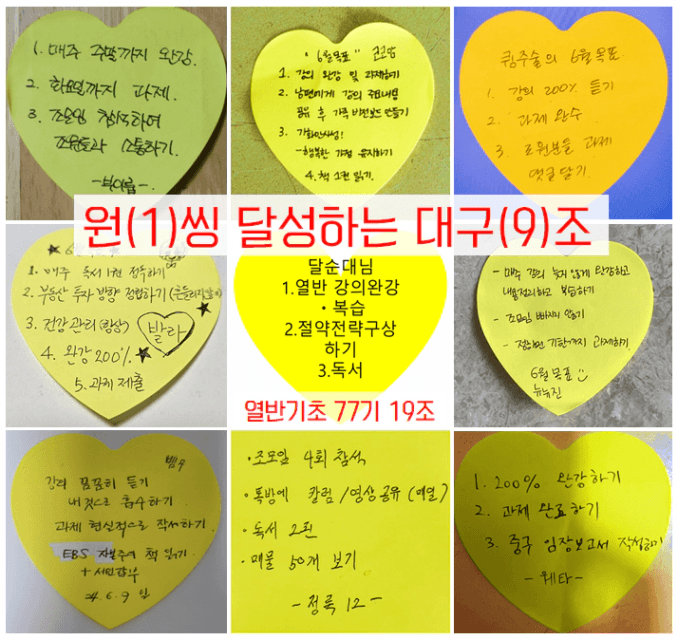 1. 매주 주말까지 완강.
2. 화요일까지 과제.
3. 조모임 참석하여
조원들과 소통하기.
"6월목표"
1. 강의 완강 및 과제하기
2. 남편에게 강의 주요내용
공유 후 가족 비전보드 만들기
3.
-행복한 가정 유지하기
4. 책 1권 읽기.
큄주술의 6월목표
1. 강의 200% 듣기
2. 과제 완수
3. 조원분들 과제
댓글 달기.
원(1)씽 달성하는 대구(9)조
1. 매주 독서 1권 정독하기
2. 부동산 투자 방향 정립하기
3. 건강관리(항상)
발라
4. 완강 200%
5. 과제 제출
달순대님
1.열반 강의완강
• 복습
2.절약전략구상
하기
3.독서
- 매주 강의 늦지 않게 완강하고
내용정리하고 복습하기
- 조모임 빠지지 않기
- 기한까지 과제하기
6월 목표
뉴뉴진
열반기초 77기 19조
강의 꼼꼼히 듣기
내것으로 흡수하기
과제 현실적으로 작성하기
EBS 자본주의 책 읽기
24. 6. 9 일
· 조모임 4회 참석
· 톡방에 칼럼/영상 공유 (매일)
· 독서 2권
· 매물 50개 보기
- 정록 12 -
1. 200% 완강하기
2. 과제 완료하기
3. 중구 임장보고서 작성하기
- 웨타 -